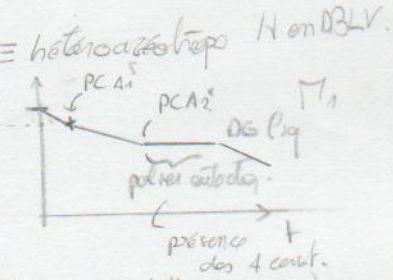 ≡ hétéroazéotrope H on DBLV.
PC A1
PC A2
M1
DG liq
palier
présence
t
des 4 const.